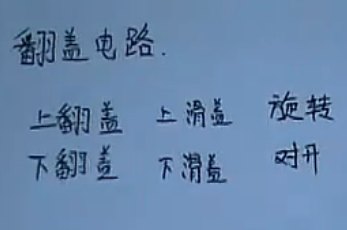 翻盖电路.
上翻盖 上滑盖 旋转
下翻盖 下滑盖 对开